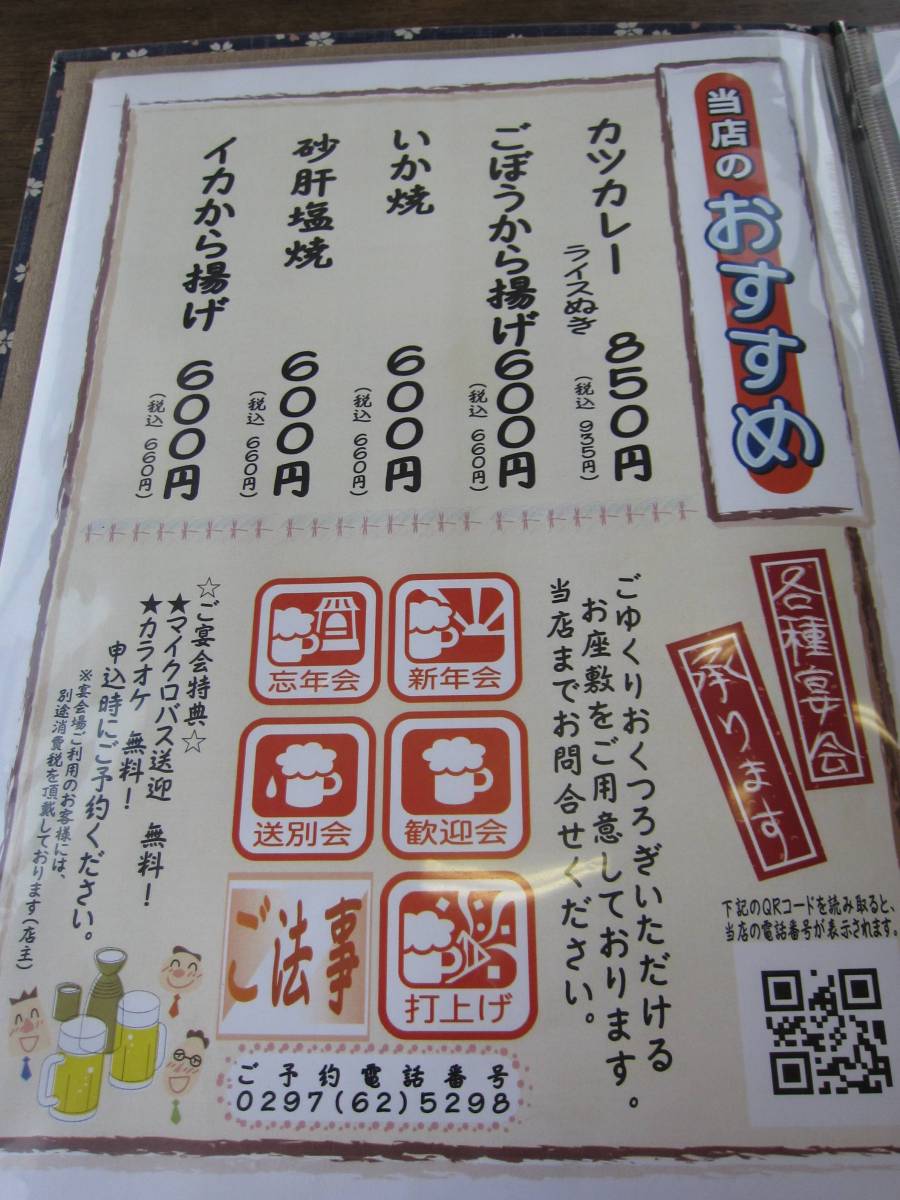 当店のおすすめ
カツカレー
ライスぬき
850円
(税込 935円)
ごぼうから揚げ600円
(税込 660円)
いか焼 600円
(税込 660円)
砂肝塩焼 600円
(税込 660円)
イカから揚げ 600円
(税込 660円)
各種宴会
承ります
下記のQRコードを読み取ると、
当店の電話番号が表示されます。
ごゆくりおくつろぎいただける
お座敷をご用意しております。
当店までお問合せください。
新年会
忘年会
歓迎会
送別会
打上げ
ご法事
☆ご宴会特典☆
★マイクロバス送迎 無料!
★カラオケ 無料!
申込時にご予約ください。
※宴会場ご利用のお客様には、
別途消費税を頂戴しております(店主)
ご予約電話番号
0297(62)5298